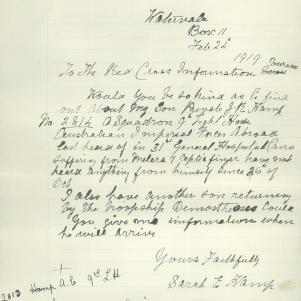 Watervale
Box 11
Feb 24th
1919
To The Red Cross Information Bureau
Would You be so kind as to find
out About My Son Private J. R. Hamp
No 2814 A Squadron 9th Light Horse
Australian Imperial Forces Abroad
last heard of in 31st General Hospital Cairo
suffering from Malera & Ceptic finger have not
heard anything from himself since 26 of
Oct
I also have another son returning
by The Troopship Demosthenes Could
You give me information when
he will arrive
Yours Faithfully
Sarah E Hamp
2813 Hamp A.E 9th LH